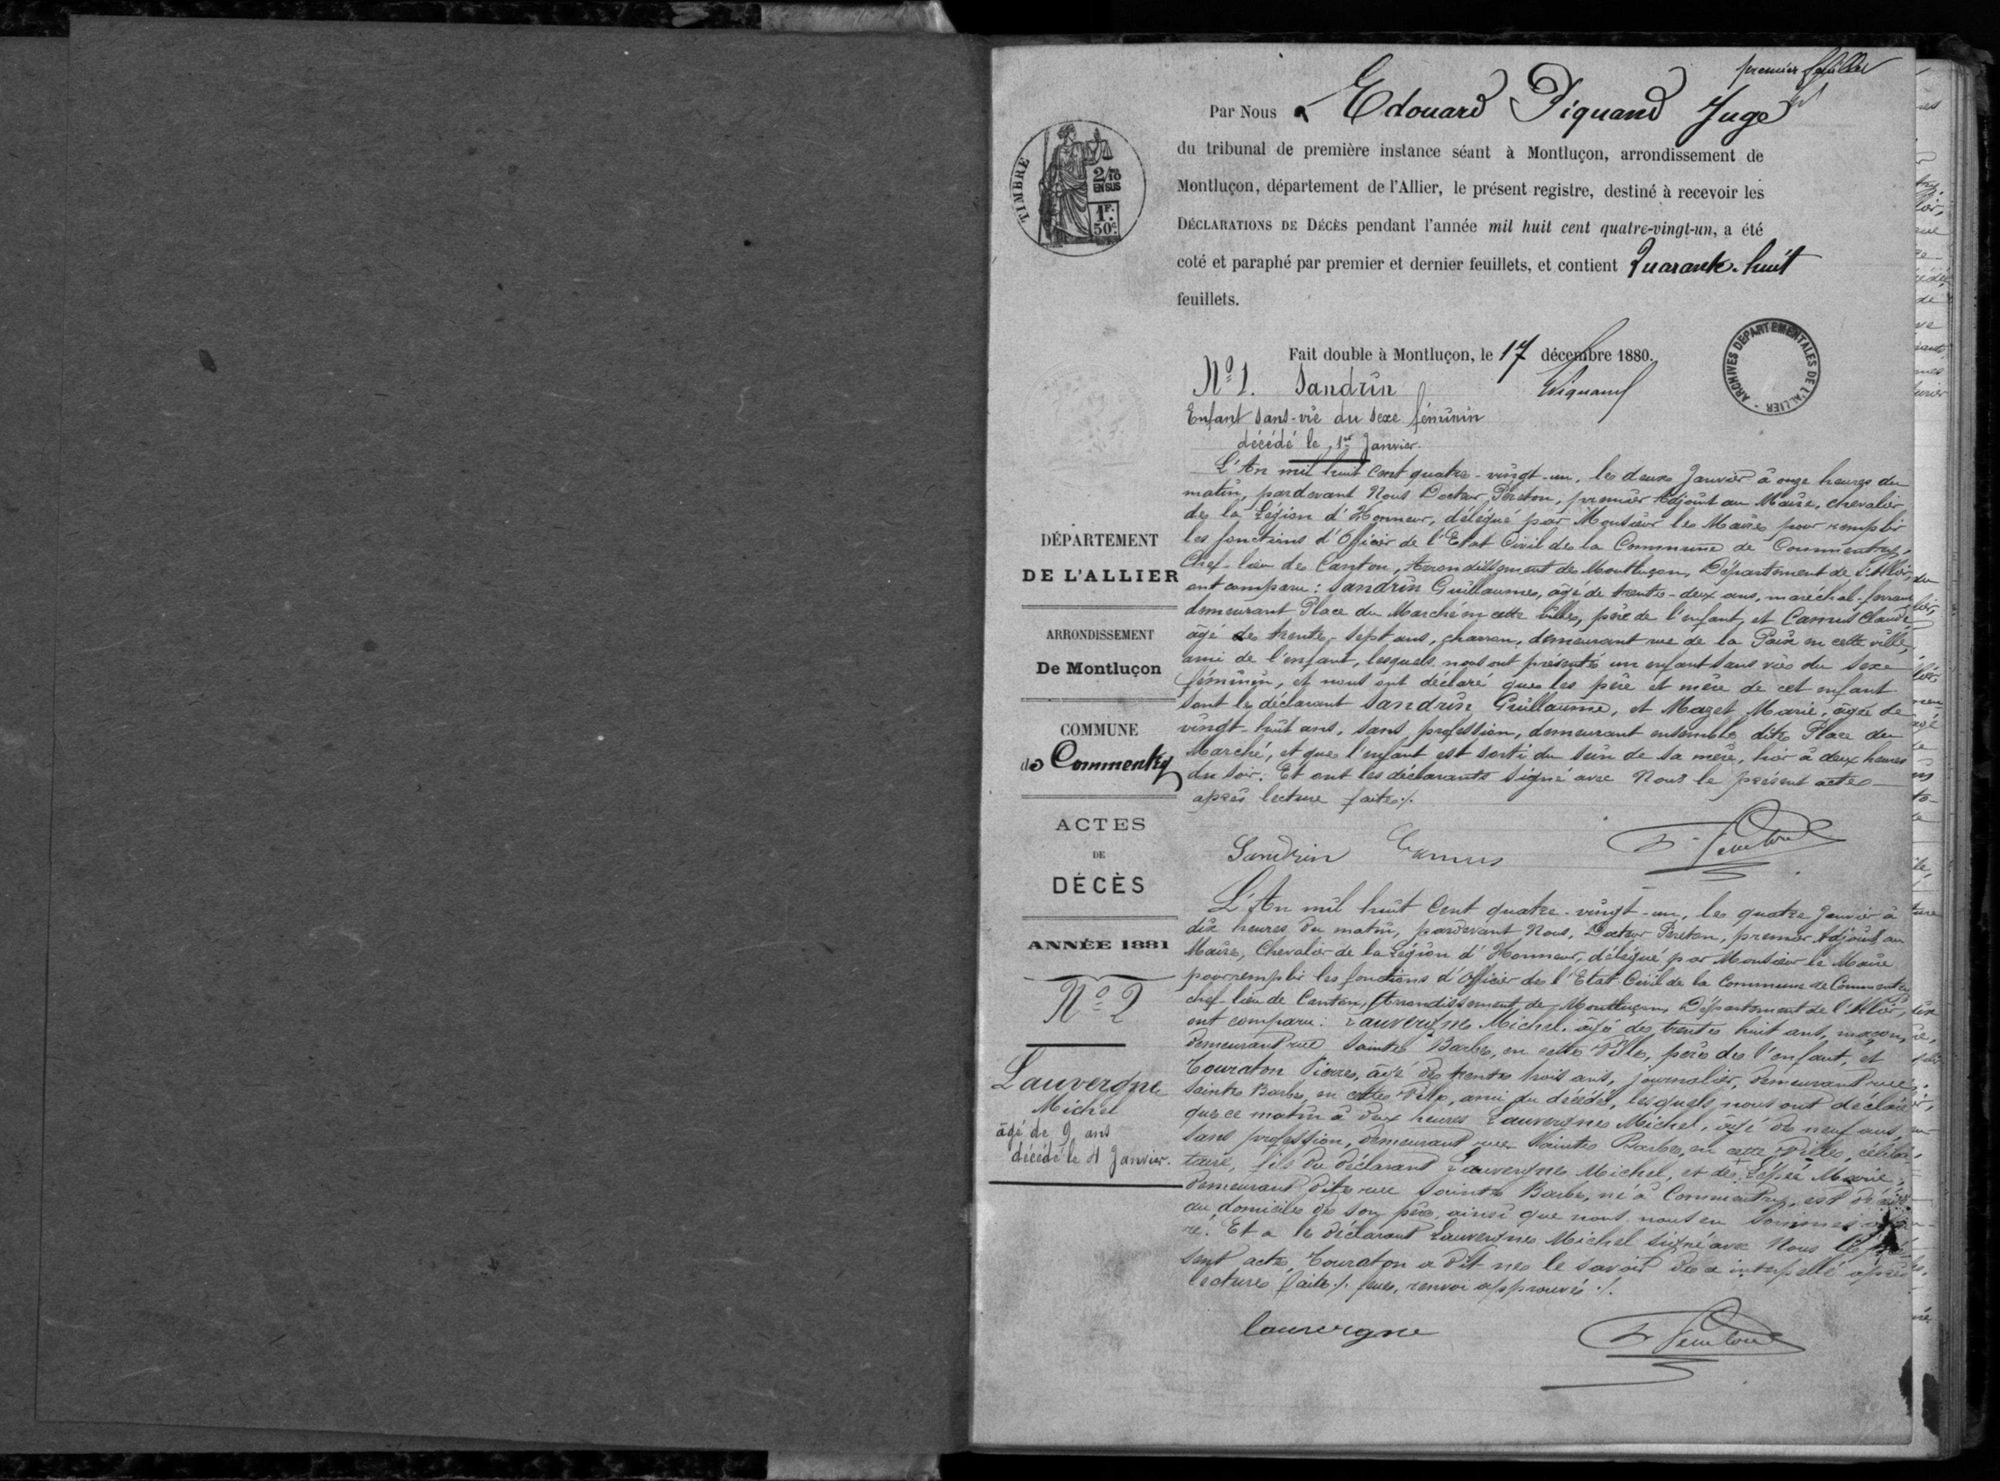 premier feuillet
Par Nous Edouard Piquand Juge
du tribunal de première instance séant à Montluçon, arrondissement de
Montluçon, département de l'Allier, le présent registre, destiné à recevoir les
DÉCLARATIONS DE DÉCÈS pendant l'année mil huit cent quatre-vingt-un, a été
coté et paraphé par premier et dernier feuillets, et contient Quarante-huit
feuillets.
TIMBRE
2/10
EN SUS
1F.
50c.
Fait double à Montluçon, le 17 décembre 1880.
Piquand
ARCHIVES DÉPARTEMENTALES DE L'ALLIER
No 1. Sandrin
Enfant sans-vie du sexe féminin
décédé le 1er Janvier.
L'An mil huit Cent quatre-vingt-un, les deux Janvier à onze heures du
matin, pardevant Nous Docteur Péreton, premier Adjoint au Maire, chevalier
de la Légion d'Honneur, délégué par Monsieur le Maire pour remplir
les fonctions d'Officier de l'Etat Civil de la Commune de Commentry,
Chef-lieu de Canton, Arrondissement de Montluçon, Département de l'Allier,
ont comparu: Sandrin Guillaume, âgé de trente-deux ans, maréchal-ferrant
demeurant Place du Marché en cette ville, père de l'enfant, et Camus Claude,
âgé de trente-sept ans, charron, demeurant rue de la Paix en cette ville,
ami de l'enfant, lesquels nous ont présenté un enfant sans vie du sexe
féminin, et nous ont déclaré que les père et mère de cet enfant
sont le déclarant Sandrin Guillaume, et Mazet Marie, âgée de
vingt-huit ans, sans profession, demeurant ensemble dite Place du
Marché, et que l'enfant est sorti du sein de sa mère, hier à deux heures
du soir. Et ont les déclarants signé avec Nous le présent acte
après lecture faite./.
Sandrin Camus
DÉPARTEMENT
DE L'ALLIER
ARRONDISSEMENT
De Montluçon
COMMUNE
de Commentry
ACTES
DE
DÉCÈS
ANNÉE 1881
No 2
Lauvergne
Michel
âgé de 9 ans
décédé le 4 Janvier.
L'An mil huit Cent quatre-vingt-un, les quatre Janvier à
dix heures du matin, pardevant Nous, Docteur Péreton, premier Adjoint au
Maire, Chevalier de la Légion d'Honneur, délégué par Monsieur le Maire
pour remplir les fonctions d'Officier de l'Etat Civil de la Commune de Commentry
chef-lieu de Canton, Arrondissement de Montluçon, Département de l'Allier,
ont comparu: Lauvergne Michel, âgé de trente huit ans, maçon,
demeurant rue Sainte Barbe, en cette Ville, père de l'enfant, et
Touraton Pierre, âgé de trente trois ans, journalier, demeurant rue
Sainte Barbe, en cette Ville, ami du décédé, lesquels nous ont déclaré
que ce matin à deux heures Lauvergne Michel, âgé de neuf ans,
sans profession, demeurant rue Sainte Barbe, en cette Ville, céliba-
taire, fils du déclarant Lauvergne Michel, et de Marie,
demeurant dite rue Sainte Barbe, né à Commentry, est décédé
au domicile de son père, ainsi que nous nous en sommes assu-
ré. Et a le déclarant Lauvergne Michel signé avec Nous le pré-
sent acte, Touraton a dit ne le savoir de ce interpellé après
lecture faite./. feue, renvoi approuvé./.
Lauvergne